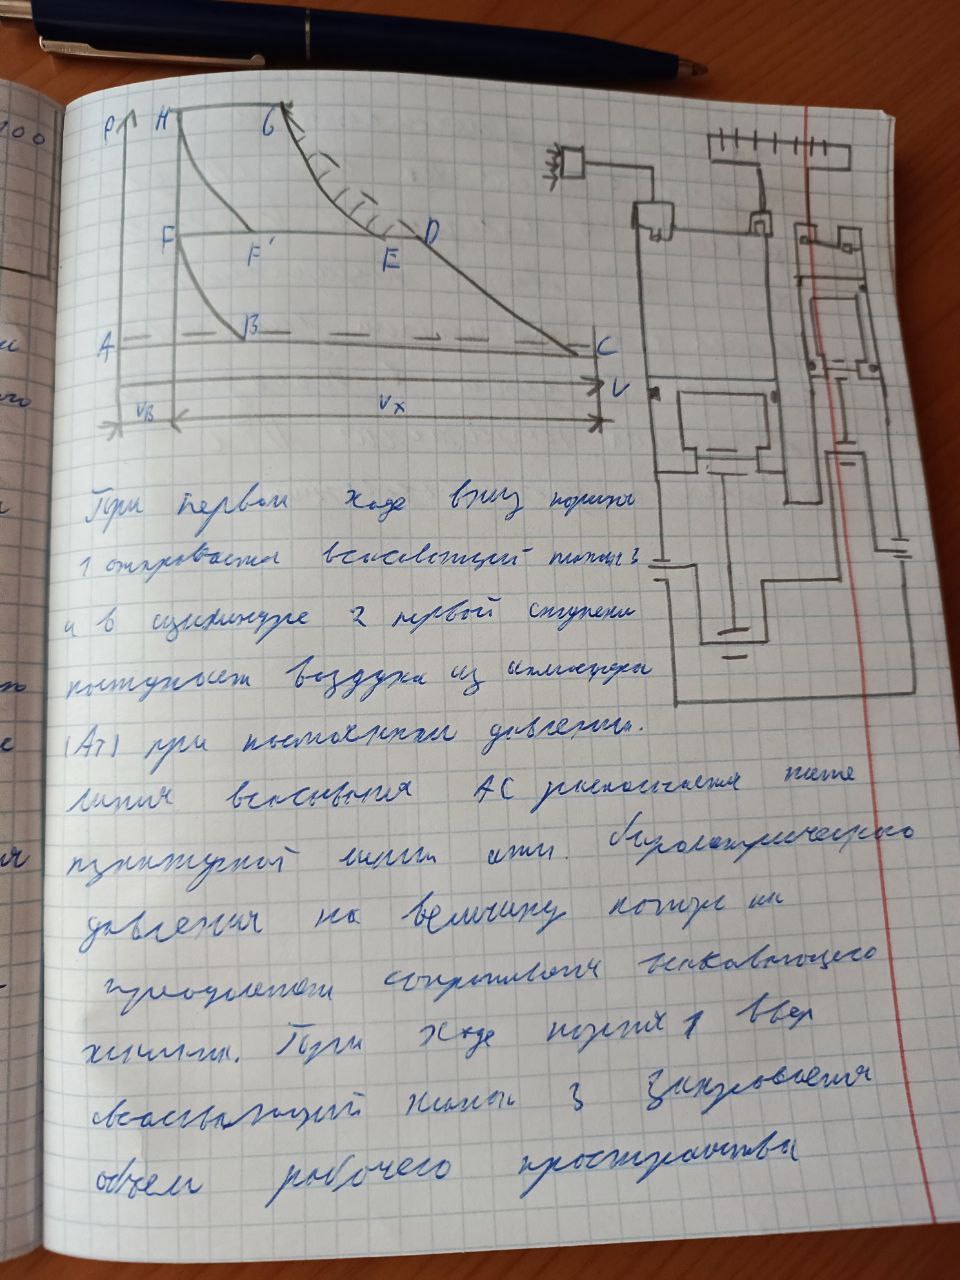 100
P
H
G
F
F'
E
D
A
B
C
V
VB
Vx
При первом ходе вниз поршня
1 открывается всасывающий клапан 3
и в цилиндре 2 первой ступени
поступает воздух из атмосферы
(Ат) при постоянном давлении.
линия всасывания AC расположена ниже
пунктирной линии атм. барометрического
давления на величину потерь на
преодоление сопротивления всасывающего
клапана. При ходе поршня 1 вверх
всасывающий клапан 3 закрывается
объем рабочего пространства